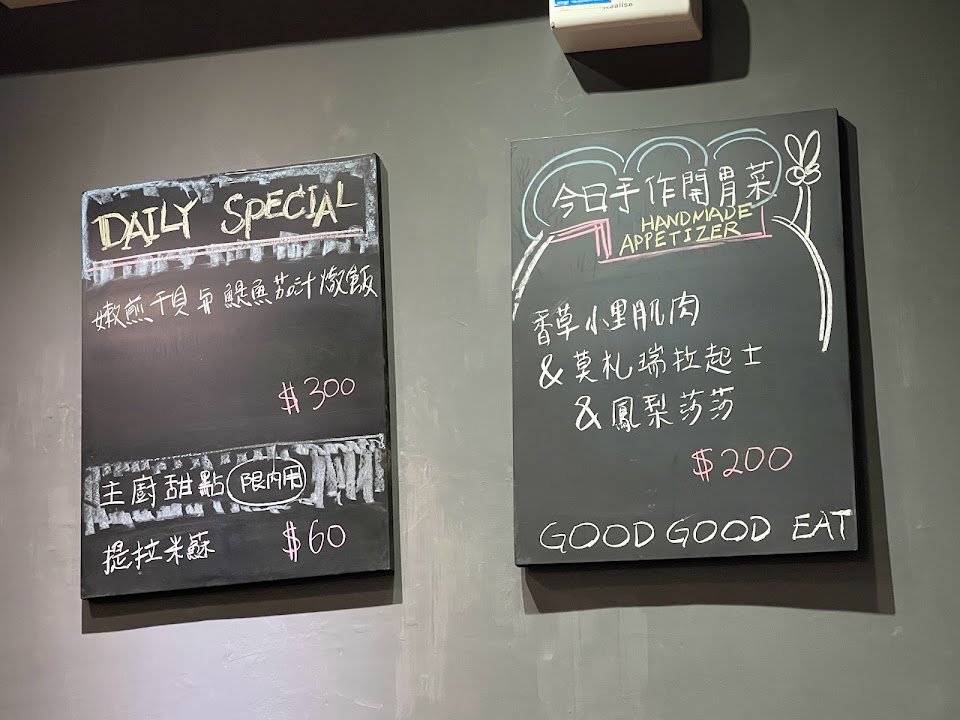 DAILY SPECIAL
嫩煎干貝與鯷魚茄汁燉飯
$300
主廚甜點 限內用
提拉米蘇 $60
今日手作開胃菜
HANDMADE
APPETIZER
香草小里肌肉
&莫札瑞拉起士
&鳳梨莎莎
$200
GOOD GOOD EAT